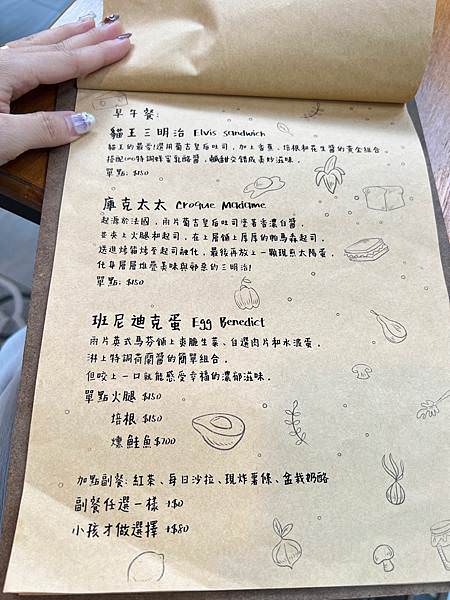 早午餐:
貓王三明治 Elvis sandwich
貓王的最愛!選用葡吉皇后吐司,加上香蕉、培根和花生醬的黃金組合。
搭配100特調蜂蜜乳酪醬,鹹甜交錯成美妙滋味。
單點: $150
庫克太太 Croque Madame
起源於法國,兩片葡吉皇后吐司塗著香濃白醬,
並夾上火腿和起司,在上層鋪上厚厚的帕馬森起司,
送進烤箱烤至起司融化,最後再放上一顆現煎太陽蛋,
化身層層堆疊美味與邪惡的三明治!
單點: $150
班尼迪克蛋 Egg Benedict
兩片英式馬芬鋪上爽脆生菜、自選肉片和水波蛋,
淋上特調荷蘭醬的簡單組合,
但咬上一口就能感受幸福的濃郁滋味。
單點火腿 $150
培根 $150
燻鮭魚 $200
加點副餐: 紅茶、每日沙拉、現炸薯條、盆栽奶酪
副餐任選一樣 +$0
小孩才做選擇 +$80